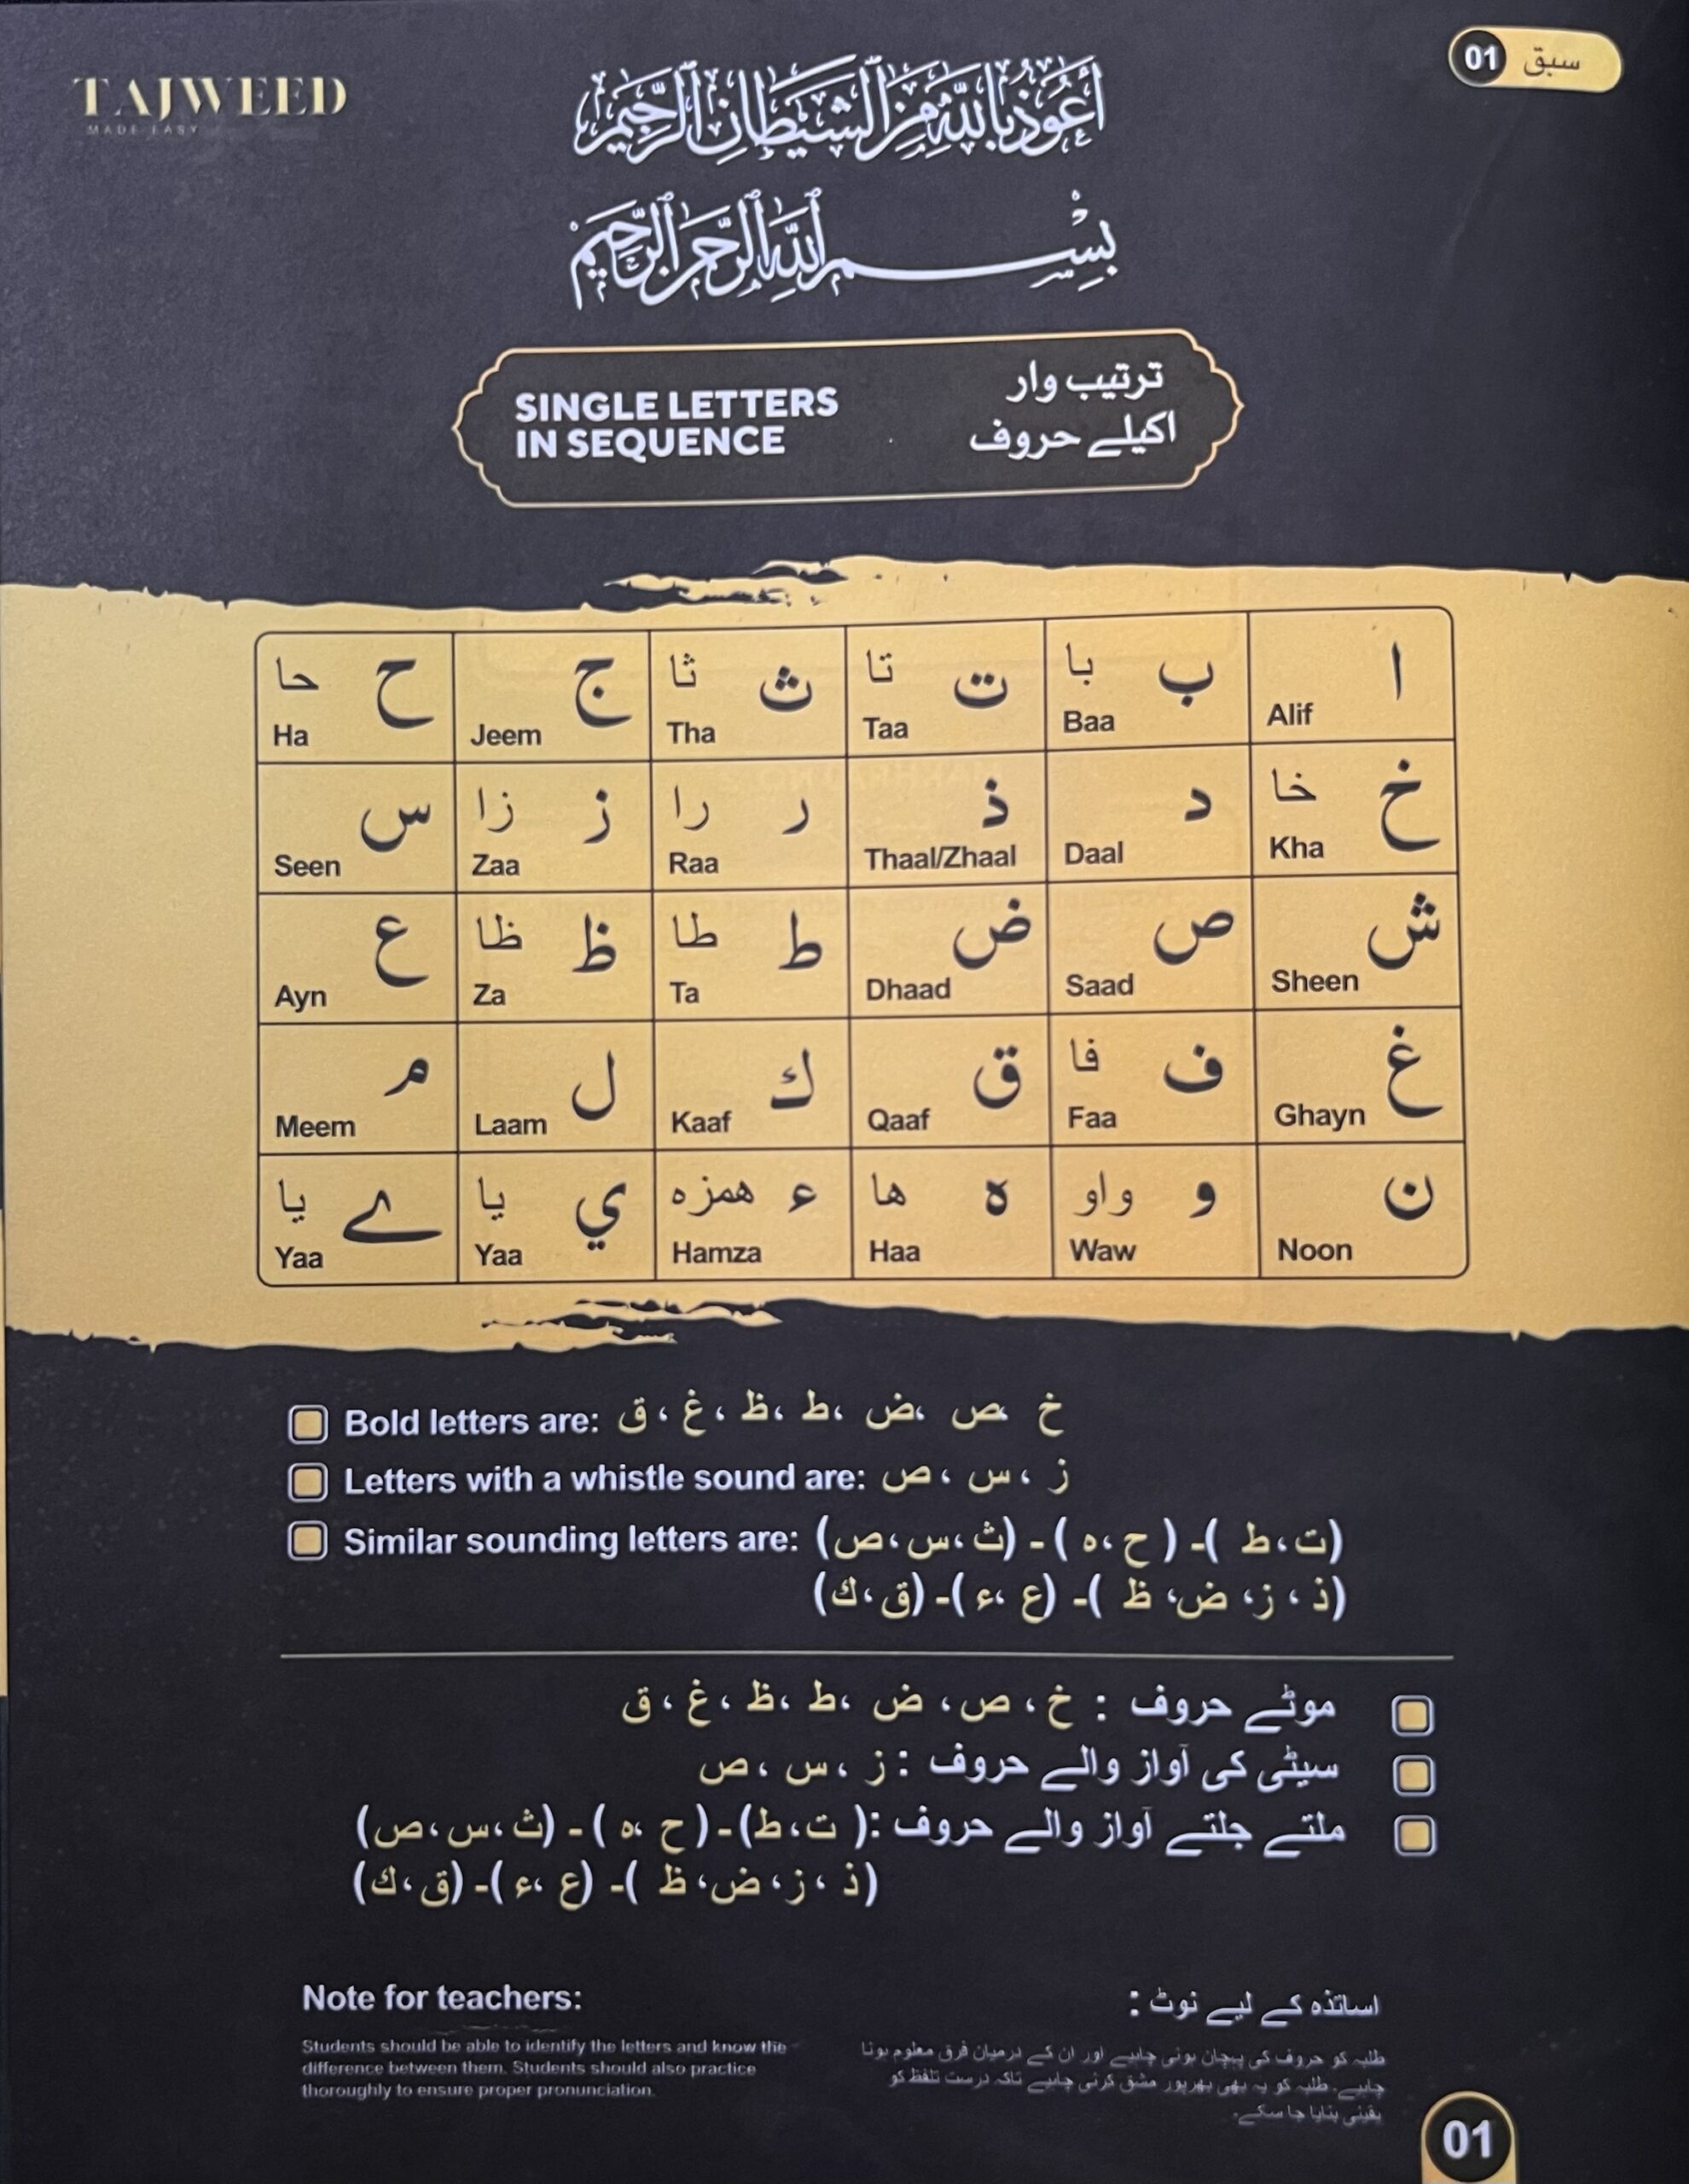 TAJWEED
MADE EASY
سبق 01
أَعُوذُ بِاللَّهِ مِنَ الشَّيْطَانِ الرَّجِيمِ
بِسْمِ اللَّهِ الرَّحْمَٰنِ الرَّحِيمِ
SINGLE LETTERS
IN SEQUENCE
ترتیب وار
اکیلے حروف
ا Alif
ب با Baa
ت تا Taa
ث ثا Tha
ج Jeem
ح حا Ha
خ خا Kha
د Daal
ذ Thaal/Zhaal
ر را Raa
ز زا Zaa
س Seen
ش Sheen
ص Saad
ض Dhaad
ط طا Ta
ظ ظا Za
ع Ayn
غ Ghayn
ف فا Faa
ق Qaaf
ك Kaaf
ل Laam
م Meem
ن Noon
و واو Waw
ه ها Haa
ء همزه Hamza
ي يا Yaa
ے يا Yaa
Bold letters are: خ ص، ض، ط، ظ، غ، ق
Letters with a whistle sound are: ز، س، ص
Similar sounding letters are: (ت، ط) - (ح، ه) - (ث، س، ص)
(ذ، ز، ض، ظ) - (ع، ء) - (ق، ك)
موٹے حروف : خ، ص، ض، ط، ظ، غ، ق
سیٹی کی آواز والے حروف : ز، س، ص
ملتے جلتے آواز والے حروف : (ت، ط) - (ح، ه) - (ث، س، ص)
(ذ، ز، ض، ظ) - (ع، ء) - (ق، ك)
Note for teachers:
Students should be able to identify the letters and know the
difference between them. Students should also practice
thoroughly to ensure proper pronunciation.
اساتذہ کے لیے نوٹ :
طلبہ کو حروف کی پہچان ہونی چاہیے اور ان کے درمیان فرق معلوم ہونا
چاہیے۔ طلبہ کو یہ بھی بھرپور مشق کرنی چاہیے تاکہ درست تلفظ کو
یقینی بنایا جا سکے۔
01